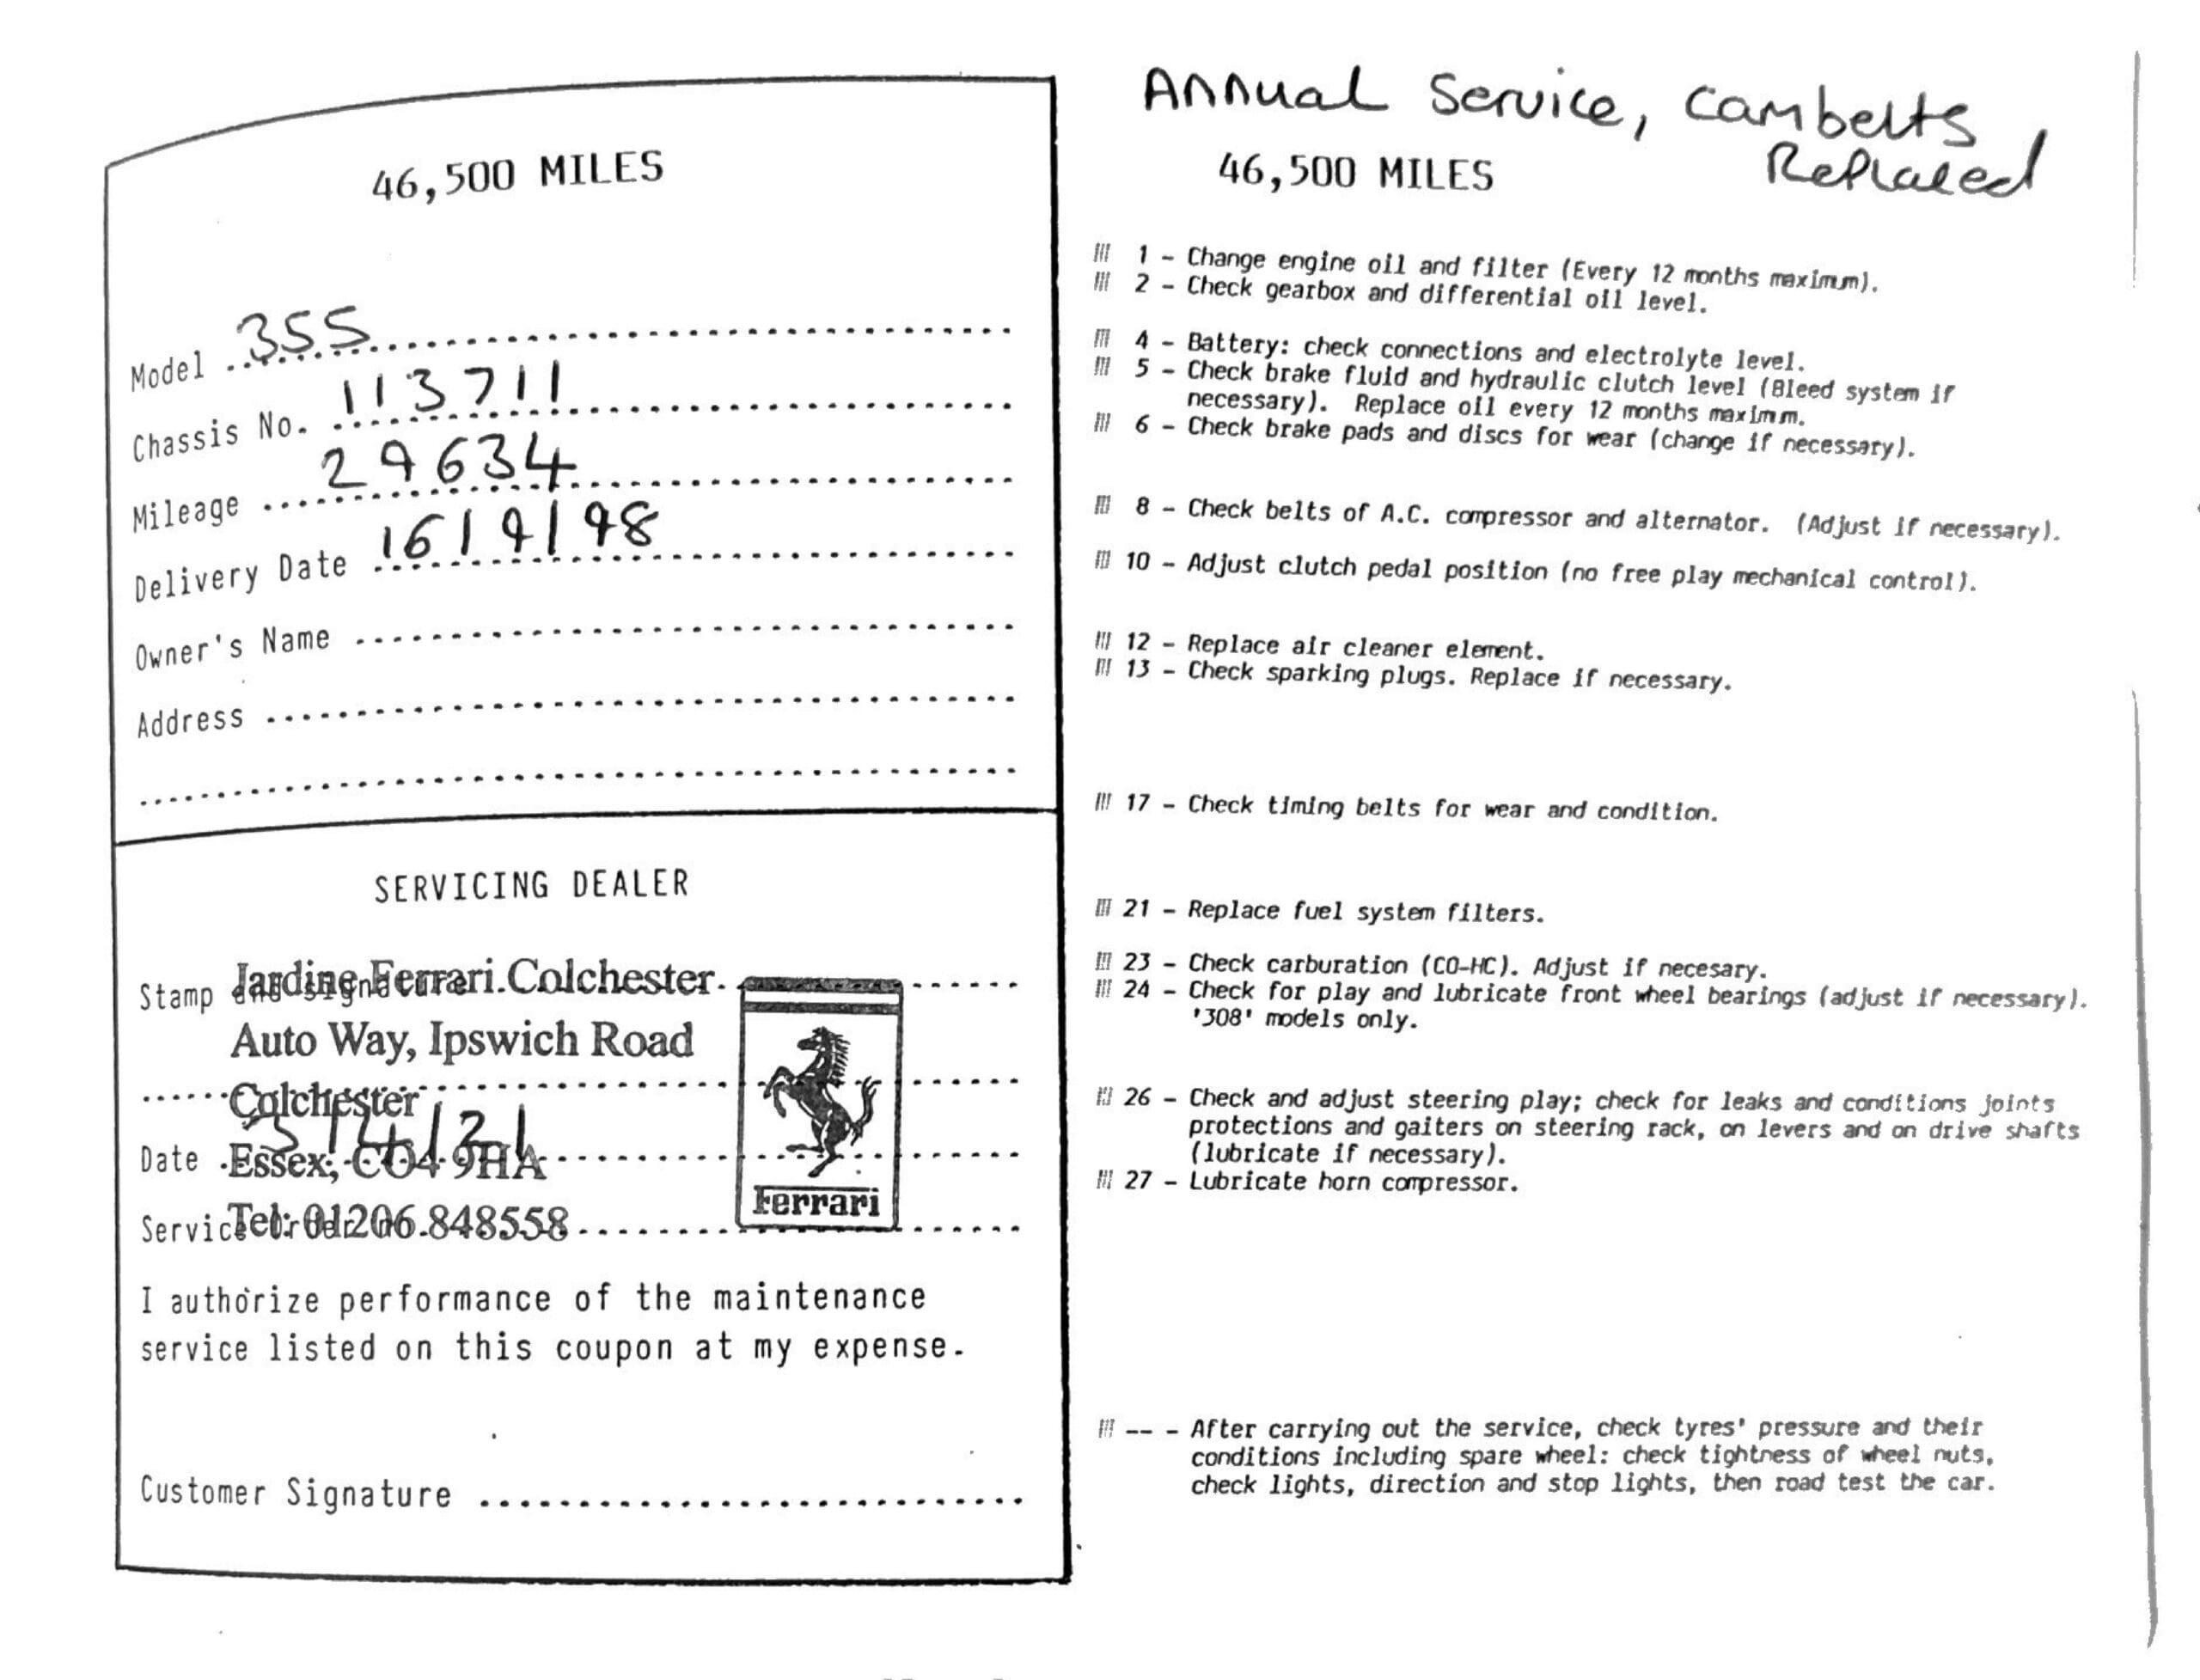 46,500 MILES
Model 355
Chassis No. 113711
Mileage 29634
Delivery Date 16/9/98
Owner's Name
Address
SERVICING DEALER
Stamp and Signature
Jardine Ferrari Colchester
Auto Way, Ipswich Road
Colchester
Essex, CO4 9HA
Tel: 01206 848558
Ferrari
Date
Service
I authorize performance of the maintenance
service listed on this coupon at my expense.
Customer Signature
Annual Service, Cambelts
Replaced
46,500 MILES
1 - Change engine oil and filter (Every 12 months maximum).
2 - Check gearbox and differential oil level.
4 - Battery: check connections and electrolyte level.
5 - Check brake fluid and hydraulic clutch level (Bleed system if
necessary). Replace oil every 12 months maximum.
6 - Check brake pads and discs for wear (change if necessary).
8 - Check belts of A.C. compressor and alternator. (Adjust if necessary).
10 - Adjust clutch pedal position (no free play mechanical control).
12 - Replace air cleaner element.
13 - Check sparking plugs. Replace if necessary.
17 - Check timing belts for wear and condition.
21 - Replace fuel system filters.
23 - Check carburation (CO-HC). Adjust if necesary.
24 - Check for play and lubricate front wheel bearings (adjust if necessary).
'308' models only.
26 - Check and adjust steering play; check for leaks and conditions joints
protections and gaiters on steering rack, on levers and on drive shafts
(lubricate if necessary).
27 - Lubricate horn compressor.
-- - After carrying out the service, check tyres' pressure and their
conditions including spare wheel: check tightness of wheel nuts,
check lights, direction and stop lights, then road test the car.